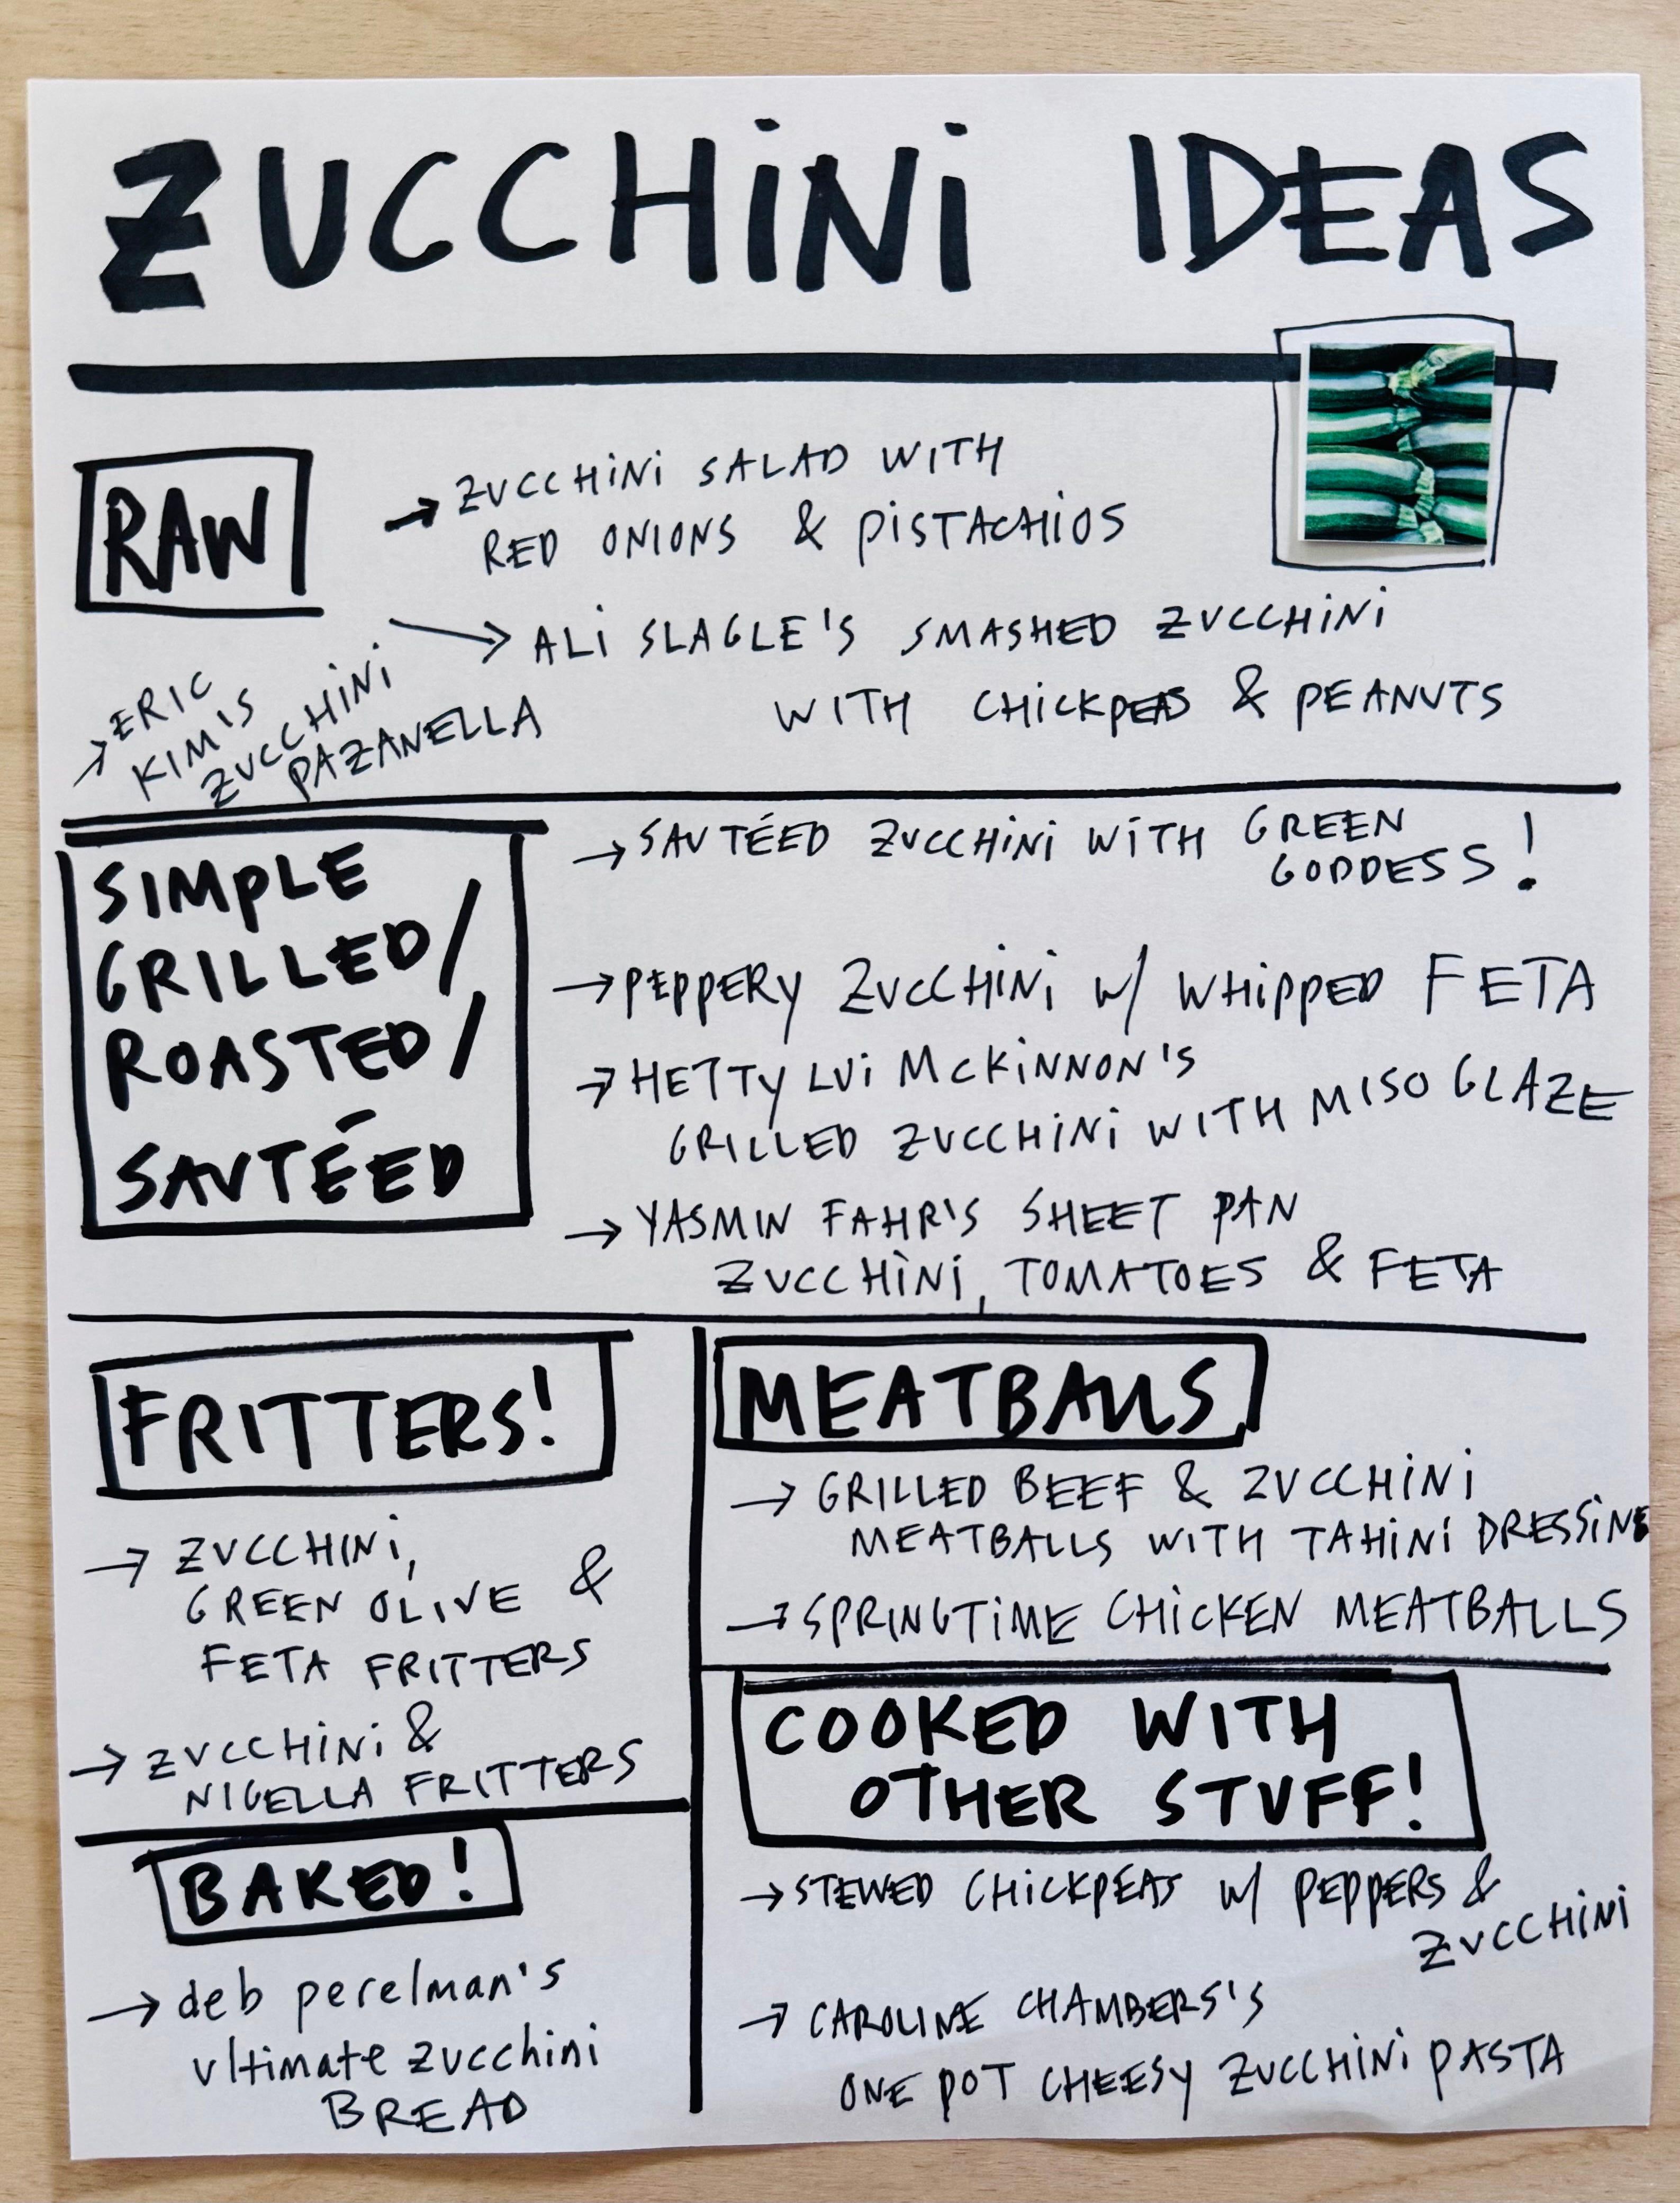 ZUCCHINI IDEAS
RAW
→ ZUCCHINI SALAD WITH
RED ONIONS & PISTACHIOS
→ ALI SLAGLE'S SMASHED ZUCCHINI
WITH CHICKPEAS & PEANUTS
→ ERIC
KIM'S
ZUCCHINI
PAZANELLA
SIMPLE
GRILLED/
ROASTED/
SAUTÉED
→ SAUTÉED ZUCCHINI WITH GREEN
GODDESS!
→ PEPPERY ZUCCHINI W/ WHIPPED FETA
→ HETTY LUI MCKINNON'S
GRILLED ZUCCHINI WITH MISO GLAZE
→ YASMIN FAHR'S SHEET PAN
ZUCCHINI, TOMATOES & FETA
FRITTERS!
→ ZUCCHINI,
GREEN OLIVE &
FETA FRITTERS
→ ZUCCHINI &
NIGELLA FRITTERS
BAKED!
→ deb perelman's
ultimate zucchini
BREAD
MEATBALLS
→ GRILLED BEEF & ZUCCHINI
MEATBALLS WITH TAHINI DRESSING
→ SPRINGTIME CHICKEN MEATBALLS
COOKED WITH
OTHER STUFF!
→ STEWED CHICKPEAS W/ PEPPERS &
ZUCCHINI
→ CAROLINE CHAMBERS'S
ONE POT CHEESY ZUCCHINI PASTA